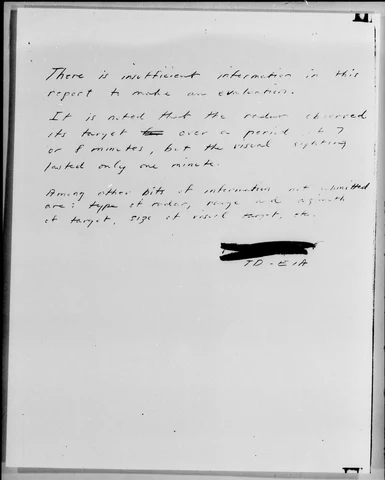 There is insufficient information in this
report to make an evaluation.
It is noted that the radar observed
its target over a period of 7
or 8 minutes, but the visual sighting
lasted only one minute.
Among other bits of information not submitted
are: type of radar, range and azimuth
of target, size of visual target, etc.
TD-E1A